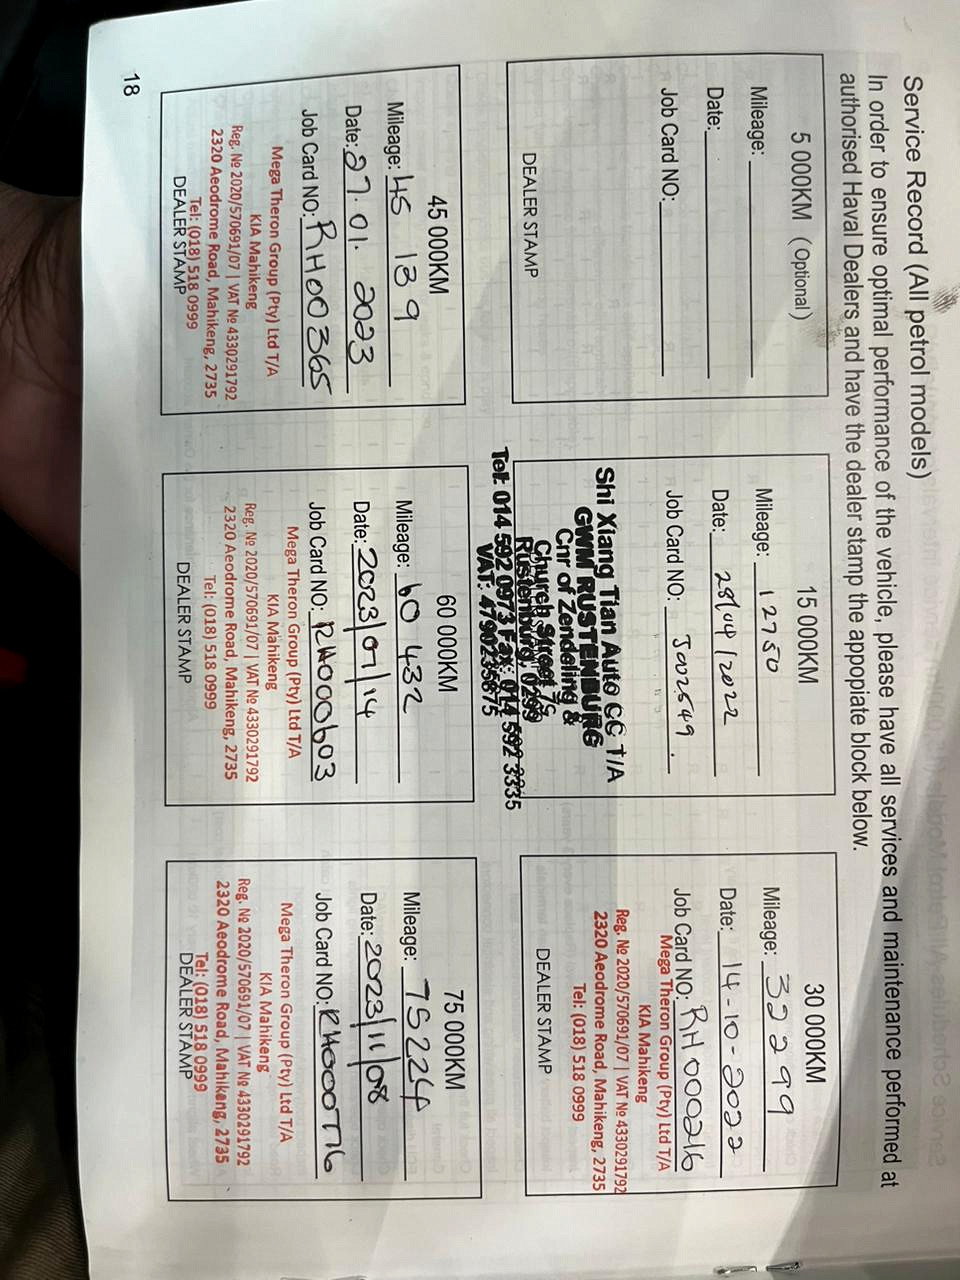 Service Record (All petrol models)
In order to ensure optimal performance of the vehicle, please have all services and maintenance performed at
authorised Haval Dealers and have the dealer stamp the appopiate block below.
5 000KM (Optional)
Mileage:
Date:
Job Card NO:
DEALER STAMP
15 000KM
Mileage: 12750
Date: 28/04/2022
Job Card NO: J02549.
Shi Xiang Tian Auto CC T/A
GWM RUSTENBURG
Cnr of Zendeling &
Church Street 7g
Rustenburg, 0299
Tel: 014 592 0973 Fax: 014 592 3335
VAT: 4790235875
30 000KM
Mileage: 32299
Date: 14-10-2022
Job Card NO: RH000216
Mega Theron Group (Pty) Ltd T/A
KIA Mahikeng
Reg. № 2020/570691/07 | VAT № 4330291792
2320 Aeodrome Road, Mahikeng, 2735
Tel: (018) 518 0999
DEALER STAMP
45 000KM
Mileage: 45 139
Date: 27.01.2023
Job Card NO: RH00365
Mega Theron Group (Pty) Ltd T/A
KIA Mahikeng
Reg. № 2020/570691/07 | VAT № 4330291792
2320 Aeodrome Road, Mahikeng, 2735
Tel: (018) 518 0999
DEALER STAMP
60 000KM
Mileage: 60 432
Date: 2023/07/14
Job Card NO: RH000603
Mega Theron Group (Pty) Ltd T/A
KIA Mahikeng
Reg. № 2020/570691/07 | VAT № 4330291792
2320 Aeodrome Road, Mahikeng, 2735
Tel: (018) 518 0999
DEALER STAMP
75 000KM
Mileage: 75224
Date: 2023/11/08
Job Card NO: RH000776
Mega Theron Group (Pty) Ltd T/A
KIA Mahikeng
Reg. № 2020/570691/07 | VAT № 4330291792
2320 Aeodrome Road, Mahikeng, 2735
Tel: (018) 518 0999
DEALER STAMP
18